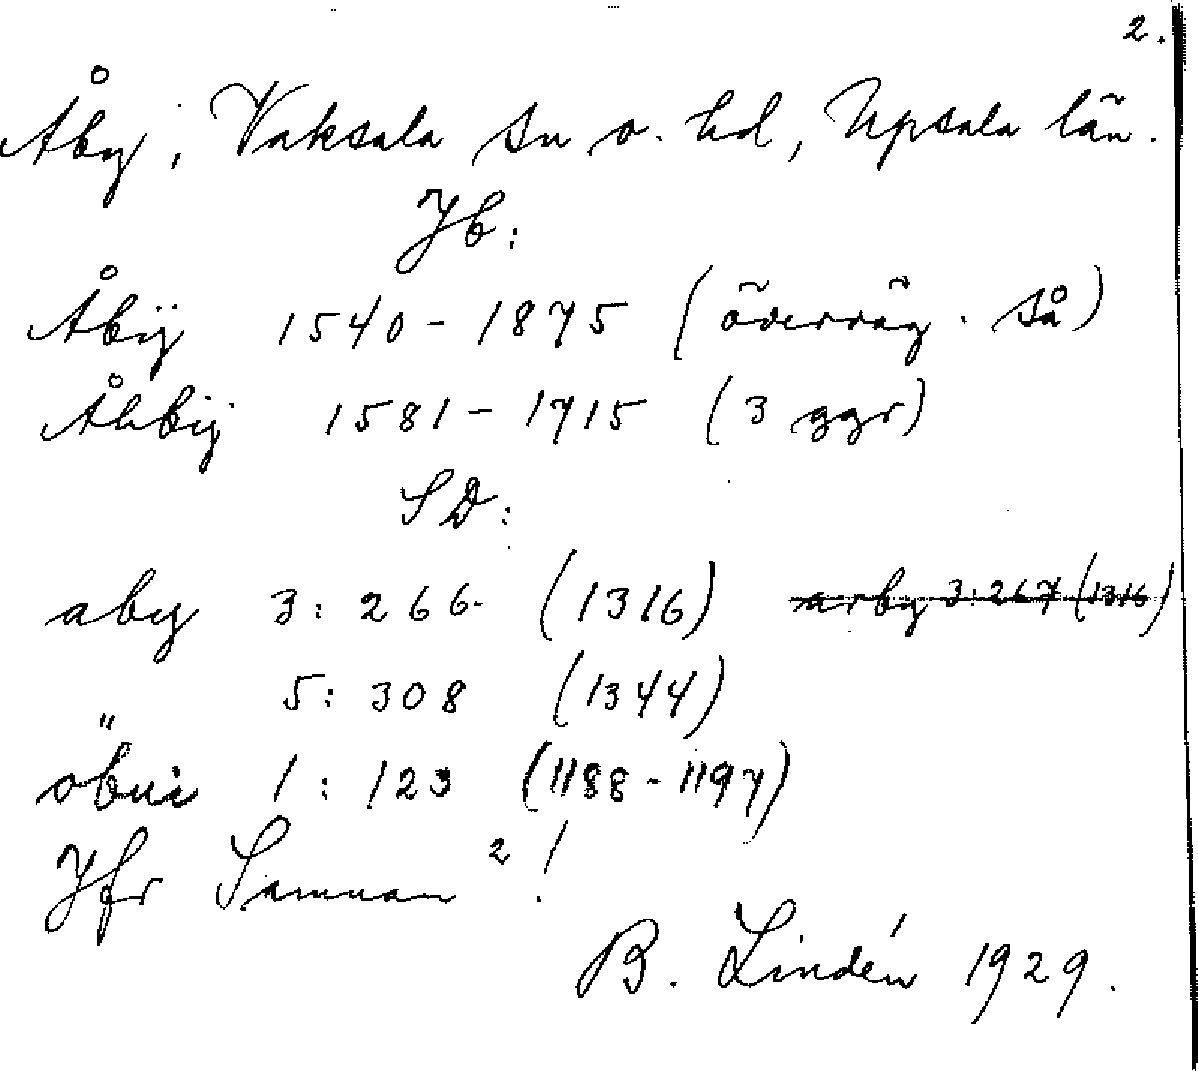 2.
Åby, Vaksala sn o. hd, Upsala län.
Jb:
Åbÿ 1540 - 1875 (överväg. så)
Åhbÿ 1581 - 1715 (3 ggr)
SD:
aby 3: 266. (1316) arby 3: 267 (1316)
5: 308 (1344)
öbui 1: 123 (1188 - 1197)
Jfr Samnan 2!
B. Lindén 1929.